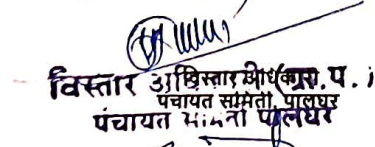 विस्तार अधिकारी (ग्रा.प.)
विस्तार अधिकारी
पंचायत समिती, पालघर
पंचायत समिती पालघर